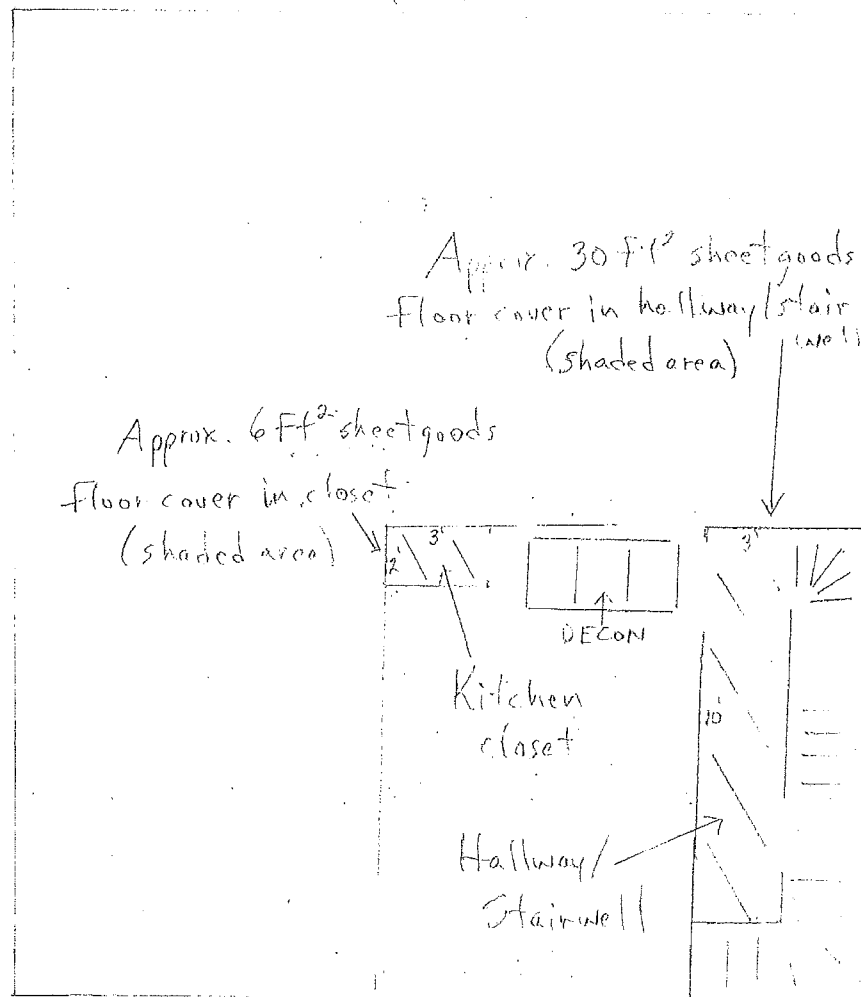 Approx. 30 Ft² sheet goods
floor cover in hallway/stair
(well)
(shaded area)
Approx. 6 Ft² sheet goods
floor cover in closet
(shaded area)
3'
2'
3'
DECON
Kitchen
closet
10'
Hallway/
Stairwell